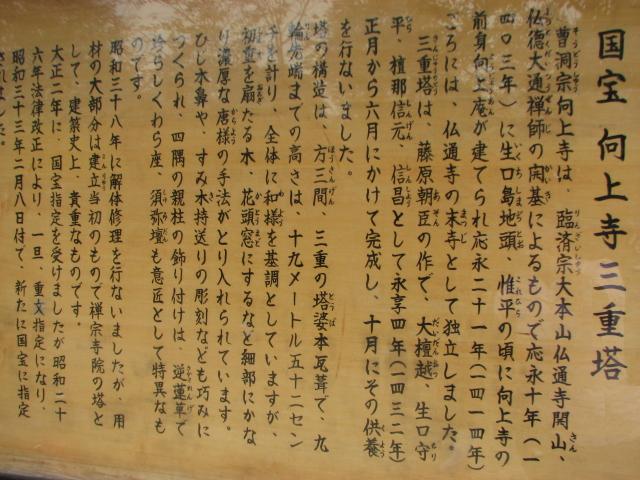 国宝 向上寺三重塔
曹洞宗向上寺は、臨済宗大本山仏通寺開山、
仏徳大通禅師の開基によるもので応永十年（一
四〇三年）に生口島地頭、惟平の頃に向上寺の
前身向上庵が建てられ応永二十一年（一四一四年）
ころには、仏通寺の末寺として独立しました。
三重塔は、藤原朝臣の作で、大檀越、生口守
平、檀那信元、信昌として永享四年（一四三二年）
正月から六月にかけて完成し、十月にその供養
を行ないました。
塔の構造は、方三間 三重の塔婆本瓦葺で、九
輪尖端までの高さは、十九メートル五十二セン
チを計り、全体に和様を基調としていますが、
初重を扇たる木、花頭窓にするなど細部にかな
り濃厚な唐様の手法がとり入れられています。
ひじ木鼻や、すみ木持送りの彫刻なども巧みに
つくられ、四隅の親柱の飾り付けは、逆蓮華で
珍らしくわら座、須弥壇も意匠として特異なも
のです。
昭和三十八年に解体修理を行ないましたが、用
材の大部分は建立当初のもので禅宗寺院の塔と
して、建築史上、貴重なものです。
大正二年に、国宝指定を受けましたが昭和二十
六年法律改正により、一旦、重文指定になり、
昭和三十三年二月八日付で、新たに国宝に指定
されました。